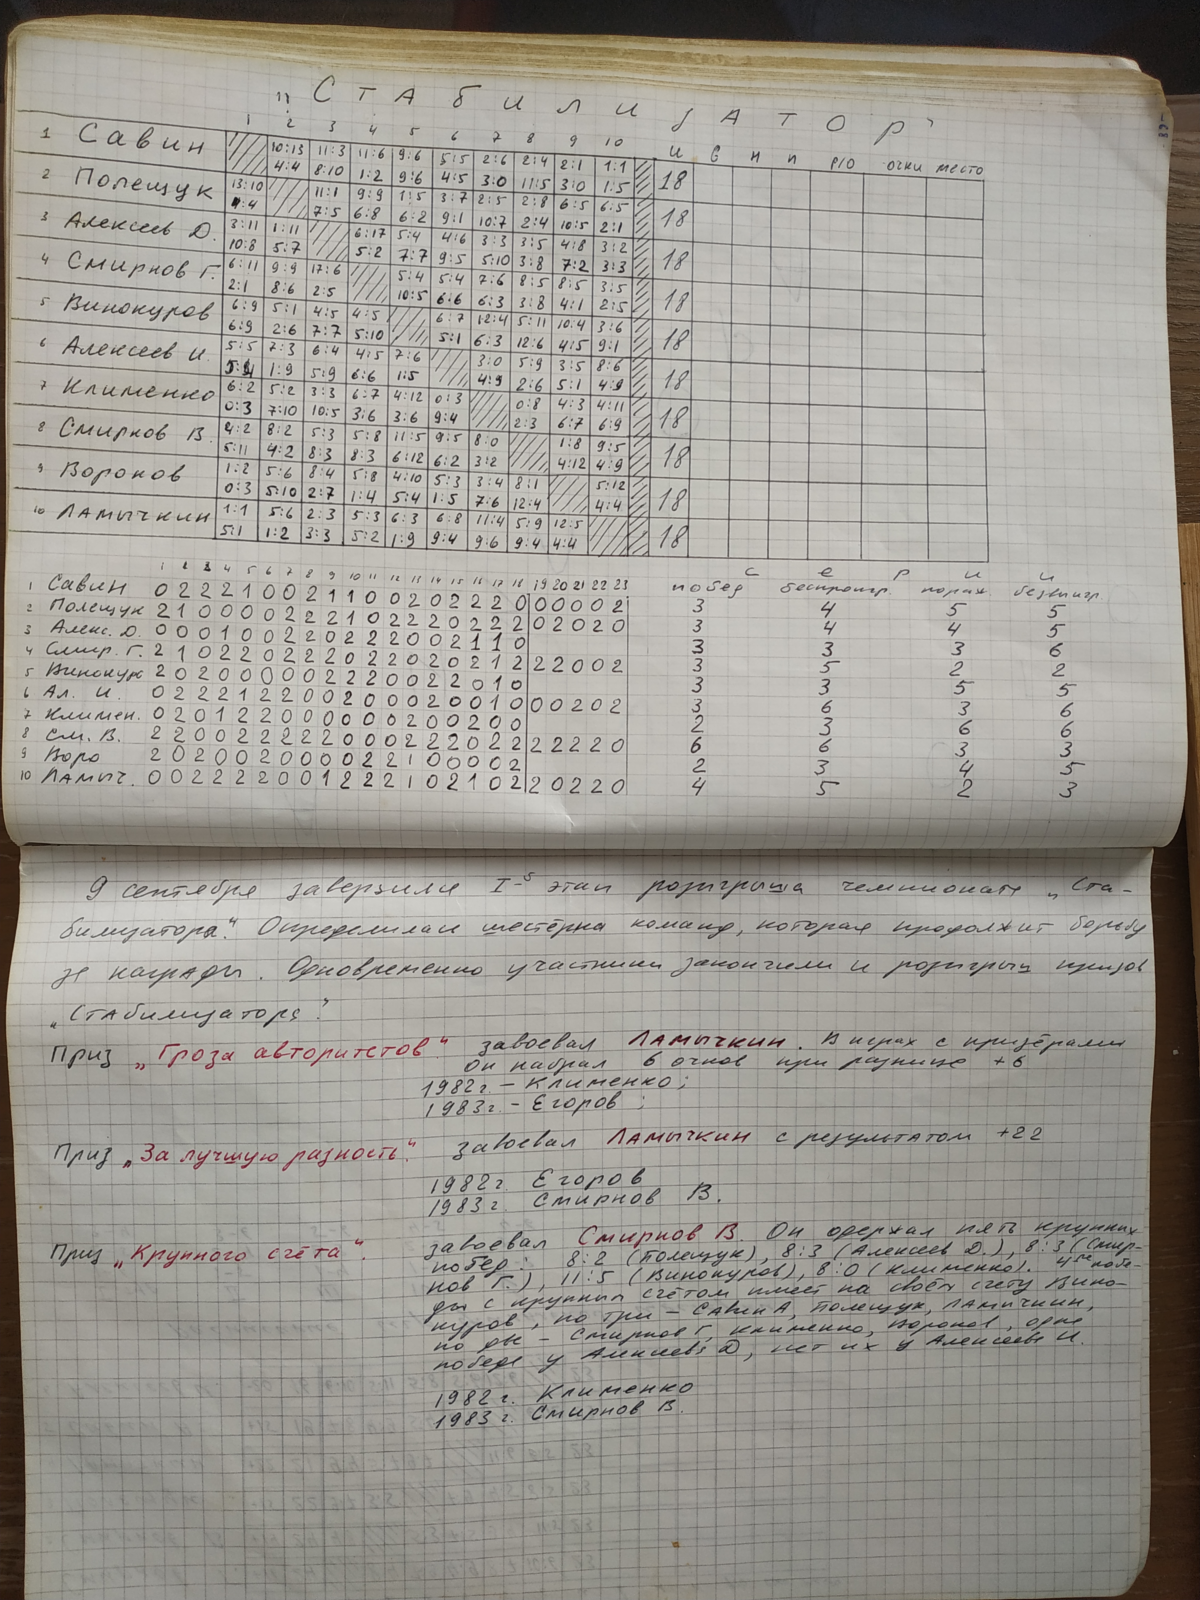 „ СТАБИЛИЗАТОР"
1 2 3 4 5 6 7 8 9 10 И В Н П Р/О ОЧКИ МЕСТО
1 Савин 10:13 11:3 11:6 9:6 5:5 2:6 2:4 2:1 1:1 18
4:4 8:10 1:2 9:6 4:5 3:0 11:5 3:0 1:5
2 Полещук 13:10 11:1 9:9 1:5 3:7 2:5 2:8 6:5 6:5 18
4:4 7:5 6:8 6:2 9:1 10:7 2:4 10:5 2:1
3 Алексеев Д. 3:11 1:11 6:17 5:4 4:6 3:3 3:5 4:8 3:2 18
10:8 5:7 5:2 7:7 9:5 5:10 3:8 7:2 3:3
4 Смирнов Г. 6:11 9:9 17:6 5:4 5:4 7:6 8:5 8:5 3:5 18
2:1 8:6 2:5 10:5 6:6 6:3 3:8 4:1 2:5
5 Винокуров 6:9 5:1 4:5 4:5 6:7 12:4 5:11 10:4 3:6 18
6:9 2:6 7:7 5:10 5:1 6:3 12:6 4:5 9:1
6 Алексеев И. 5:5 7:3 6:4 4:5 7:6 3:0 5:9 3:5 8:6 18
5:4 1:9 5:9 6:6 1:5 4:9 2:6 5:1 4:9
7 Клименко 6:2 5:2 3:3 6:7 4:12 0:3 0:8 4:3 4:11 18
0:3 7:10 10:5 3:6 3:6 9:4 2:3 6:7 6:9
8 Смирнов В. 4:2 8:2 5:3 5:8 11:5 9:5 8:0 1:8 9:5 18
5:11 4:2 8:3 8:3 6:12 6:2 3:2 4:12 4:9
9 Воронов 1:2 5:6 8:4 5:8 4:10 5:3 3:4 8:1 5:12 18
0:3 5:10 2:7 1:4 5:4 1:5 7:6 12:4 4:4
10 Ламычкин 1:1 5:6 2:3 5:3 6:3 6:8 11:4 5:9 12:5 18
5:1 1:2 3:3 5:2 1:9 9:4 9:6 9:4 4:4
1 2 3 4 5 6 7 8 9 10 11 12 13 14 15 16 17 18 19 20 21 22 23 С Е Р И И
побед беспроигр. пораж. безвыигр.
1 Савин 0 2 2 2 1 0 0 2 1 1 0 0 2 0 2 2 2 0 0 0 0 0 2 3 4 5 5
2 Полещук 2 1 0 0 0 0 2 2 2 1 0 2 2 2 0 2 2 2 0 2 0 2 0 3 4 4 5
3 Алекс. Д. 0 0 0 1 0 0 2 2 0 2 2 2 0 0 2 1 1 0 3 3 3 6
4 Смир. Г. 2 1 0 2 2 0 2 2 2 0 2 2 0 2 0 2 1 2 2 2 0 0 2 3 5 2 2
5 Винокур 2 0 2 0 0 0 0 0 2 2 2 0 0 2 2 0 1 0 3 3 5 5
6 Ал. И. 0 2 2 2 1 2 2 0 0 2 0 0 0 2 0 0 1 0 0 0 2 0 2 3 6 3 6
7 Климен. 0 2 0 1 2 2 0 0 0 0 0 0 2 0 0 2 0 0 2 3 6 6
8 См. В. 2 2 0 0 2 2 2 2 2 0 0 0 2 2 2 0 2 2 2 2 2 2 0 6 6 3 3
9 Воро 2 0 2 0 0 2 0 0 0 0 2 2 1 0 0 0 0 2 2 3 4 5
10 Ламыч. 0 0 2 2 2 2 0 0 1 2 2 2 1 0 2 1 0 2 2 0 2 2 0 4 5 2 3
9 сентября завершили I-й этап розыгрыша чемпионата „Ста-
билизатора". Определилась шестёрка команд, которая продолжит борьбу
за награды. Одновременно участники закончили и розыгрыш призов
„Стабилизатора".
Приз „Гроза авторитетов" завоевал Ламычкин. В играх с призёрами
он набрал 6 очков при разнице +6
1982г. - Клименко;
1983г. - Егоров;
Приз „За лучшую разность". завоевал Ламычкин с результатом +22
1982г. Егоров
1983г. Смирнов В.
Приз „Крупного счёта". завоевал Смирнов В. Он одержал пять крупных
побед: 8:2 (Полещук), 8:3 (Алексеев Д.), 8:3 (Смир-
нов Г.), 11:5 (Винокуров), 8:0 (Клименко). 4 побе-
ды с крупным счётом имеет на своём счету Вино-
куров, по три - Савин А, Полещук, Ламычкин,
по две - Смирнов Г, Клименко, Воронов, одна
победа у Алексеева Д, нет их у Алексеева И.
1982г. Клименко
1983г. Смирнов В.